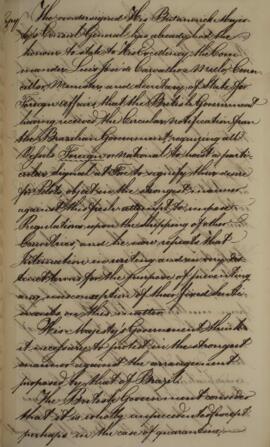 Copy
The undersigned His Britannick Majes-
ty's Consul General has already had the
honour to state to His Excellency, the Com-
mander Luiz José de Carvalho e Mello, Coun-
cillor, Minister and Secretary of State for
Foreign Affairs, that the British Government
having received the Circular notification from
the Brazilian Government, requiring all
Vessels Foreign or National to hoist a parti-
cular signal at Sea to signify their
for Pilots object in the strongest manner
against this fresh attempt to impose
Regulations upon the shipping of other
Countries, and he now repeats that
intimation in writing and in very dis-
tinct terms for the purpose of preventing
any misconception of their fixed senti-
ments on this matter.
His Majesty's Government thinks
it necessary to protest in the strongest
manner against the arrangement
proposed by that of Brazil.
The British Government considers
that it is wholly unprecedented except
perhaps in the case of quarantine,